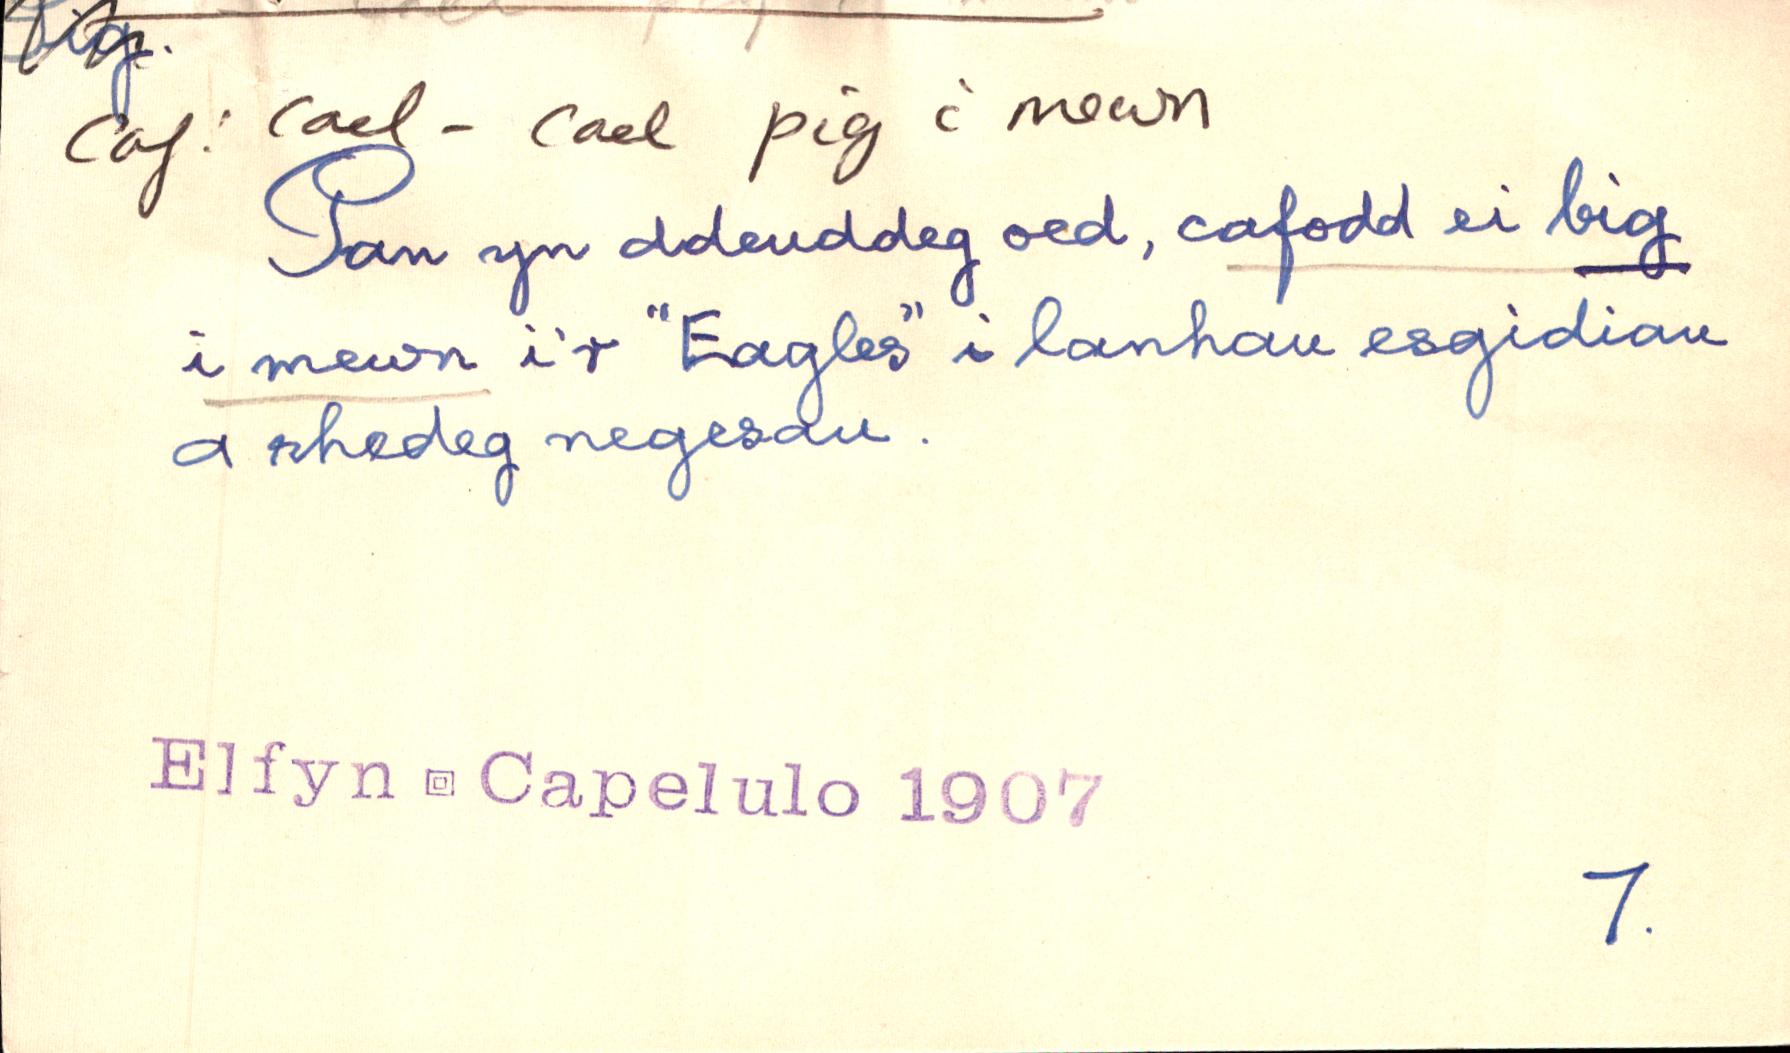 pig.
caf: cael - cael pig i mewn
Pan yn ddeuddeg oed, cafodd ei big
i mewn i'r "Eagles" i lanhau esgidiau
a rhedeg negesau.
Elfyn Capelulo 1907
7.